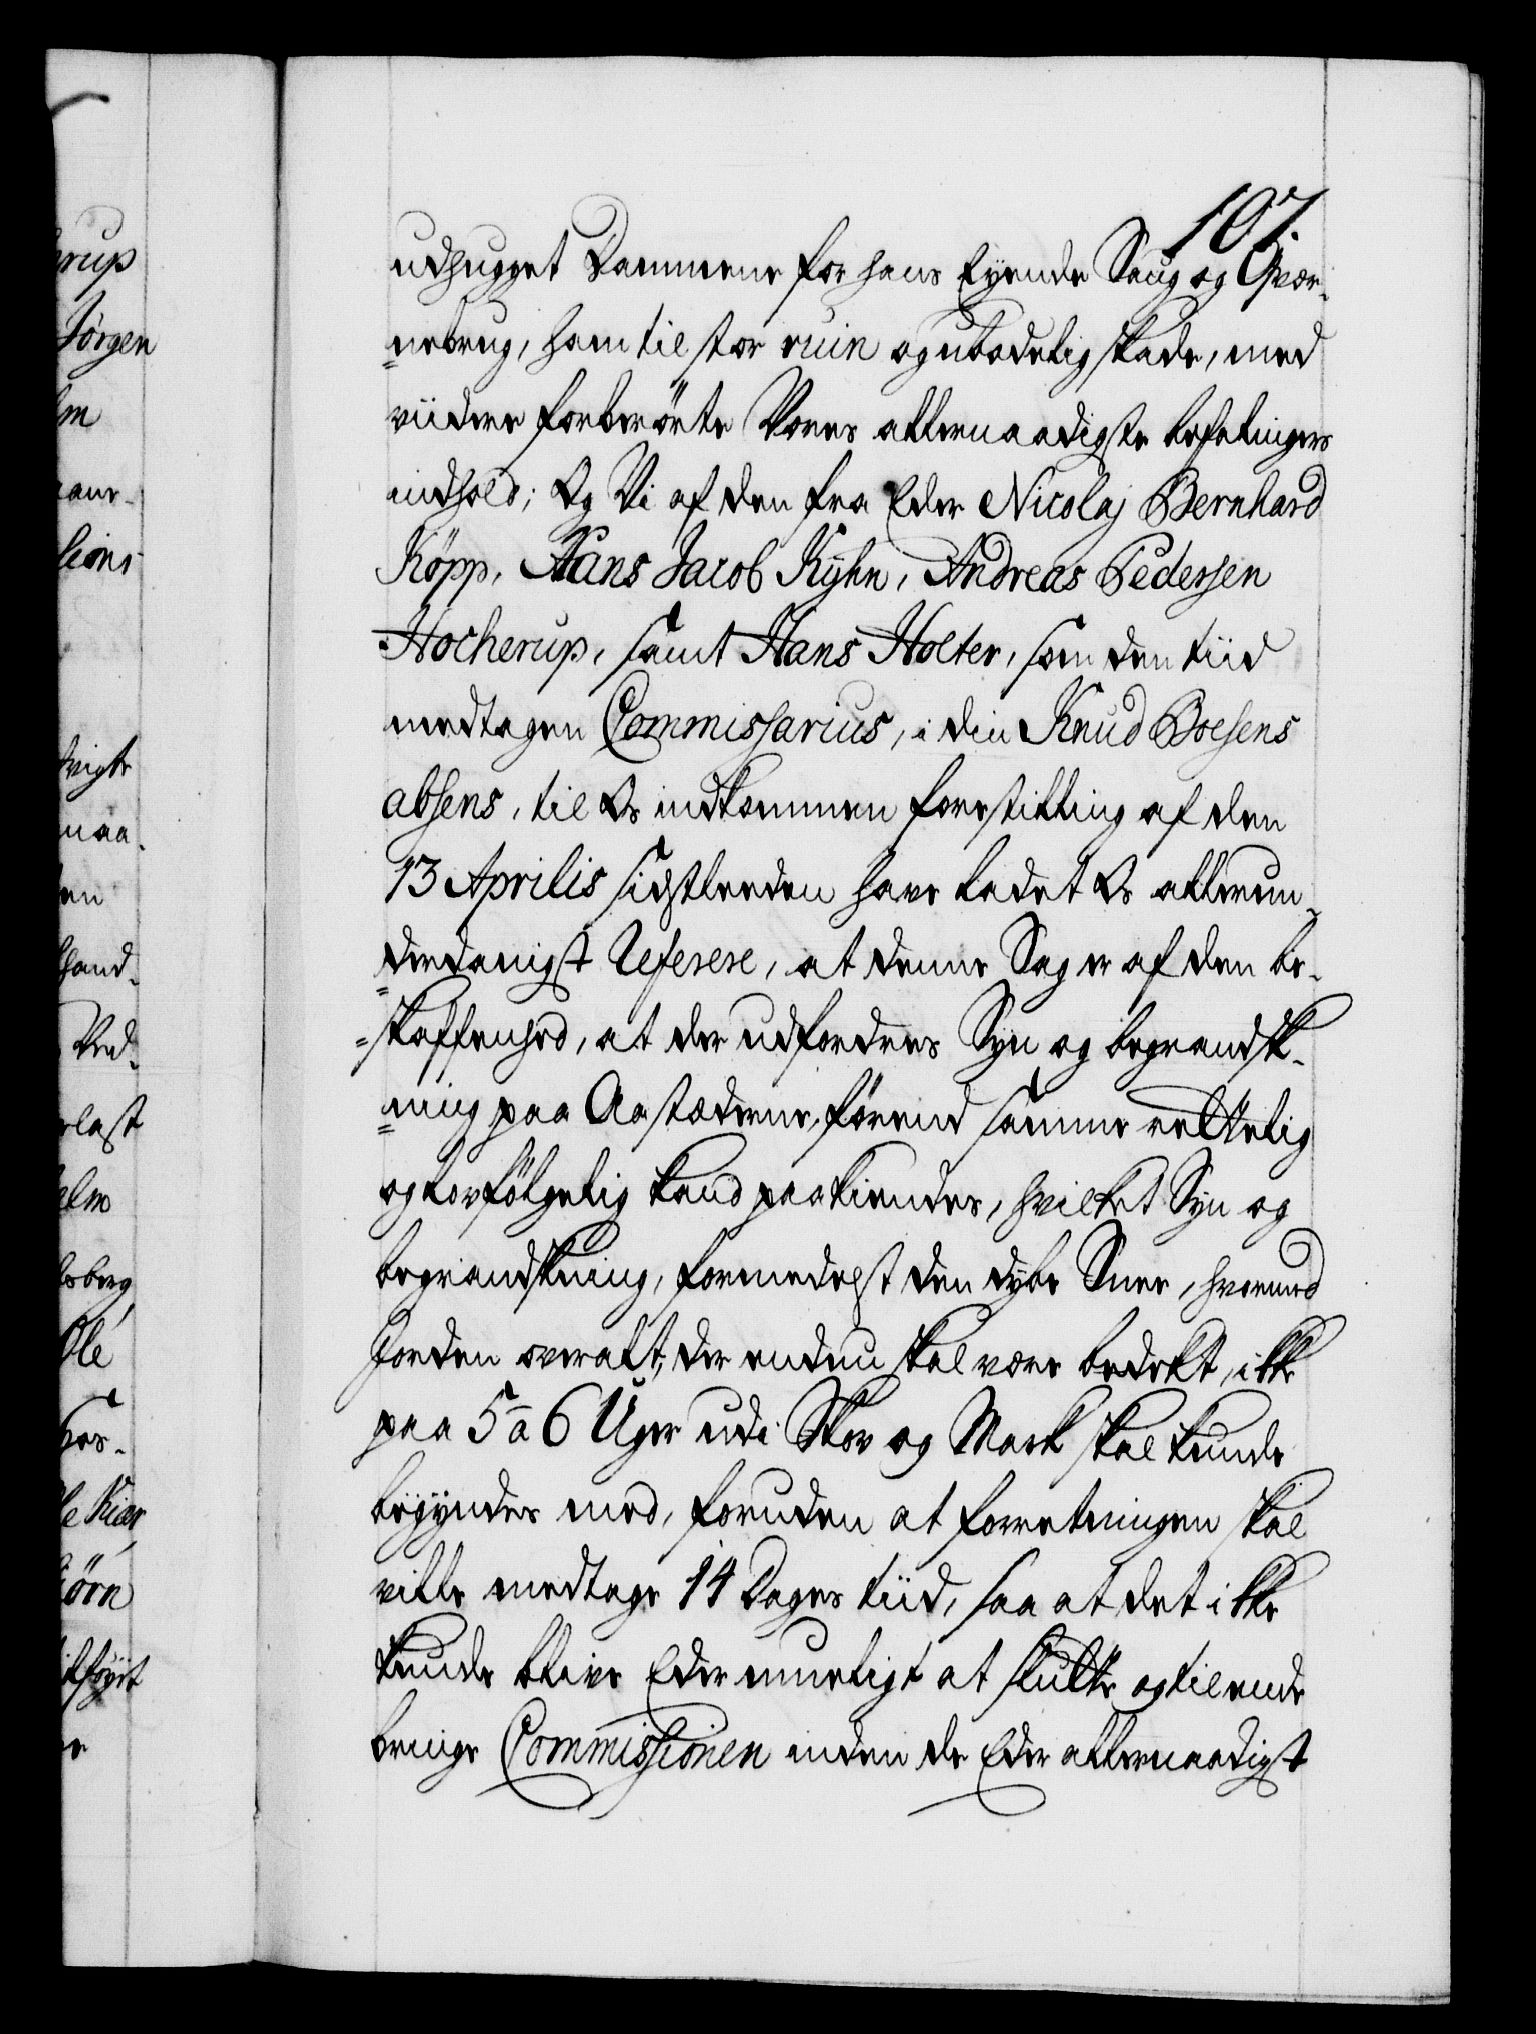 107.
udhugget Dammene for hans Eyende Saug og Qvær-
nebrug, ham til stor ruin og ubodelig skade, med
viidere forberörte Vores allernaadigste befalingers
indhold; Og Vi af den fra Eder Nicolaj Bernhard
Köpp, Hans Jacob Kyhn, Andreas Pedersen
Hocherup, samt Hans Holter, som den tiid
medtagen Commissarius, i din Knud Boesens
absens, til Os indkommen forestilling af den
13 Aprilis sidstleeden have ladet Os allerun-
derdanigst Referere, at denne Sag er af den be-
skaffenhed, at der udfordres Syn og begrandsk-
ning paa Aastæderne, förend samme rettelig
og lovfölgelig kand paakiendes, hvilket Syn og
begrandskning, formedelst den dybe Snee, hvormed
Jorden overalt, der endnu skal være bedekt, ikke
paa 5 a 6 Uger udi Skov og Mark skal kunde
begyndes med, foruden at forretningen skal
ville medtage 14 Dages tiid, saa at det ikke
kunde blive Eder mueligt at slutte og til ende
bringe Commissionen inden de Eder allernaadigst
rup
Jörgen
lions
hand-
Ole